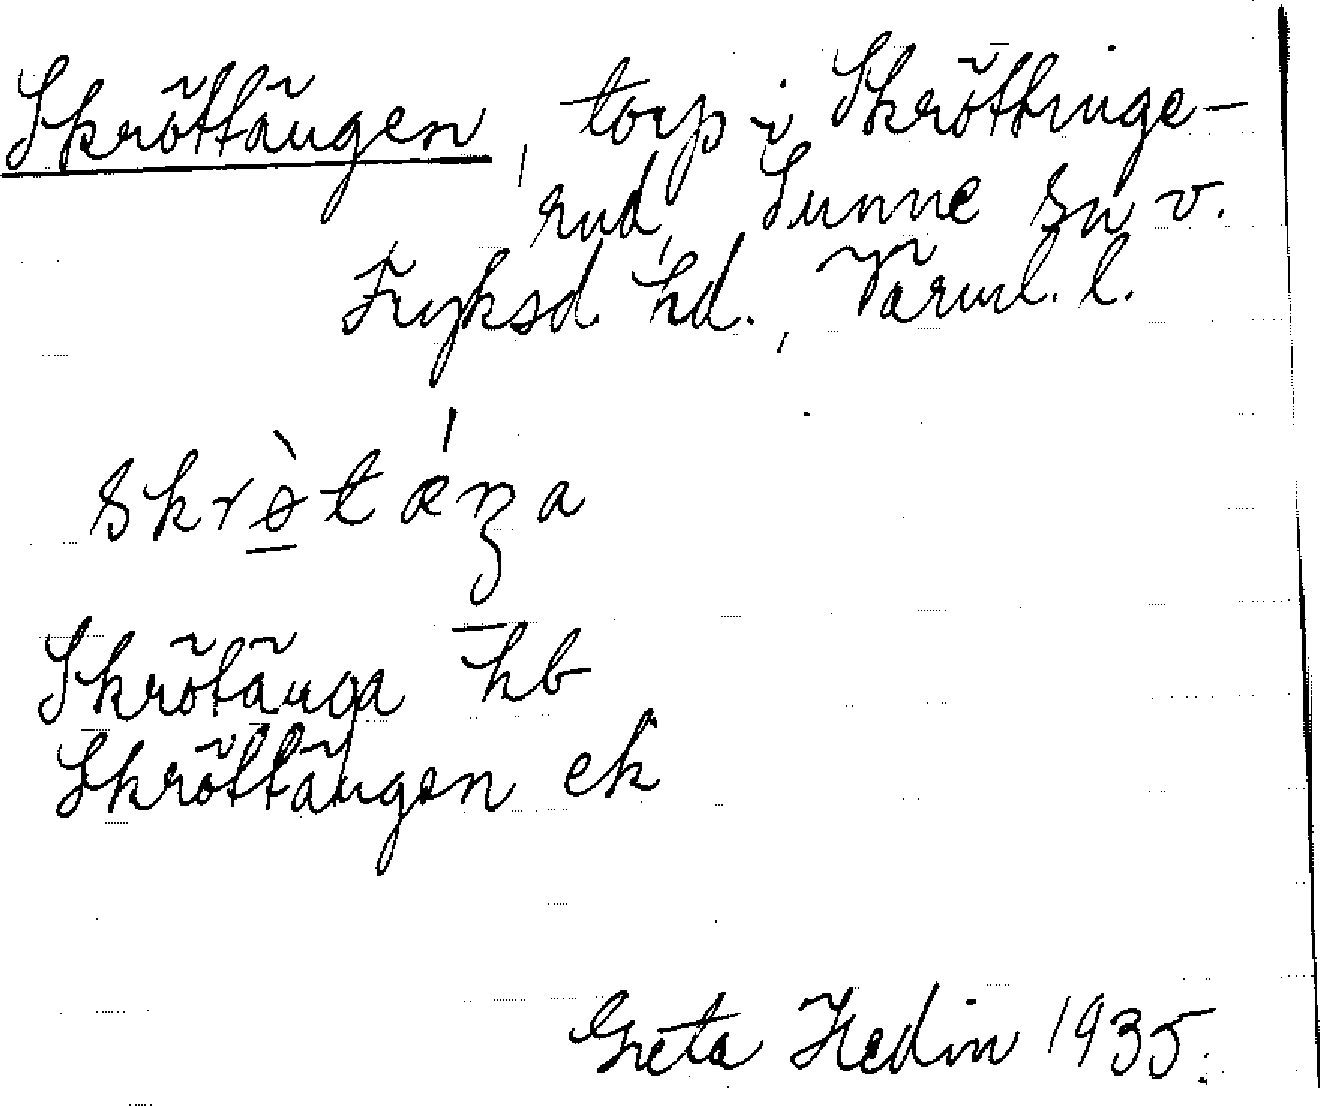 Skröttängen, torp i Skröttinge-
rud, Sunne sn v.
Fryksd. hd., Värml. l.
skrø̀tǽŋa
Skrötänga hb
Skröttängen ek
Greta Hedin 1935.